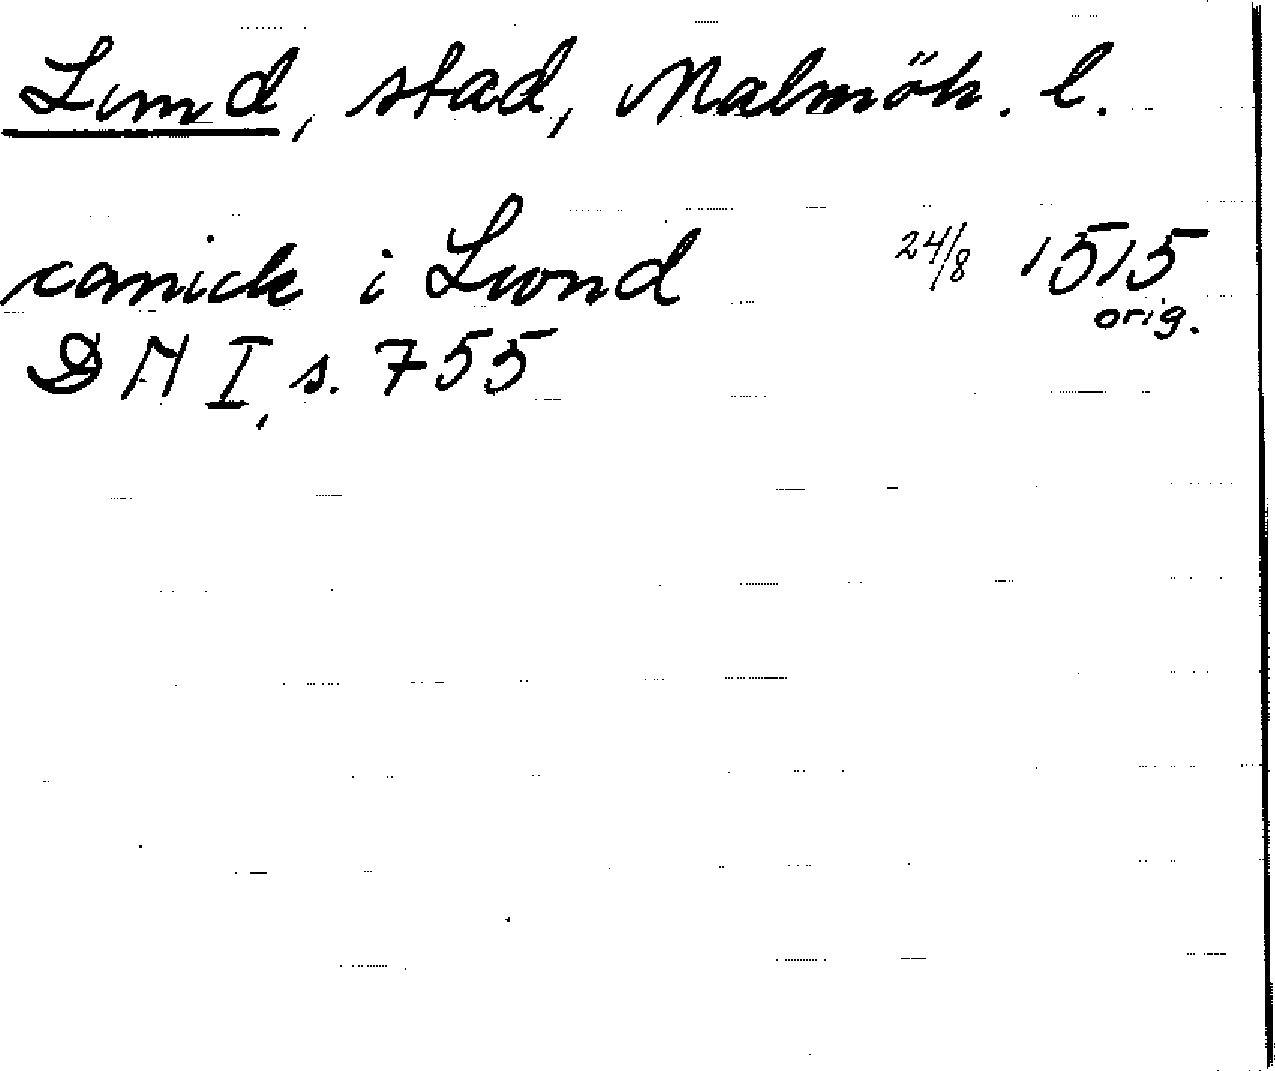 Lund, stad, Malmöh. l.
canick i Lwnd 24/8 1515
orig.
DMI, s. 755